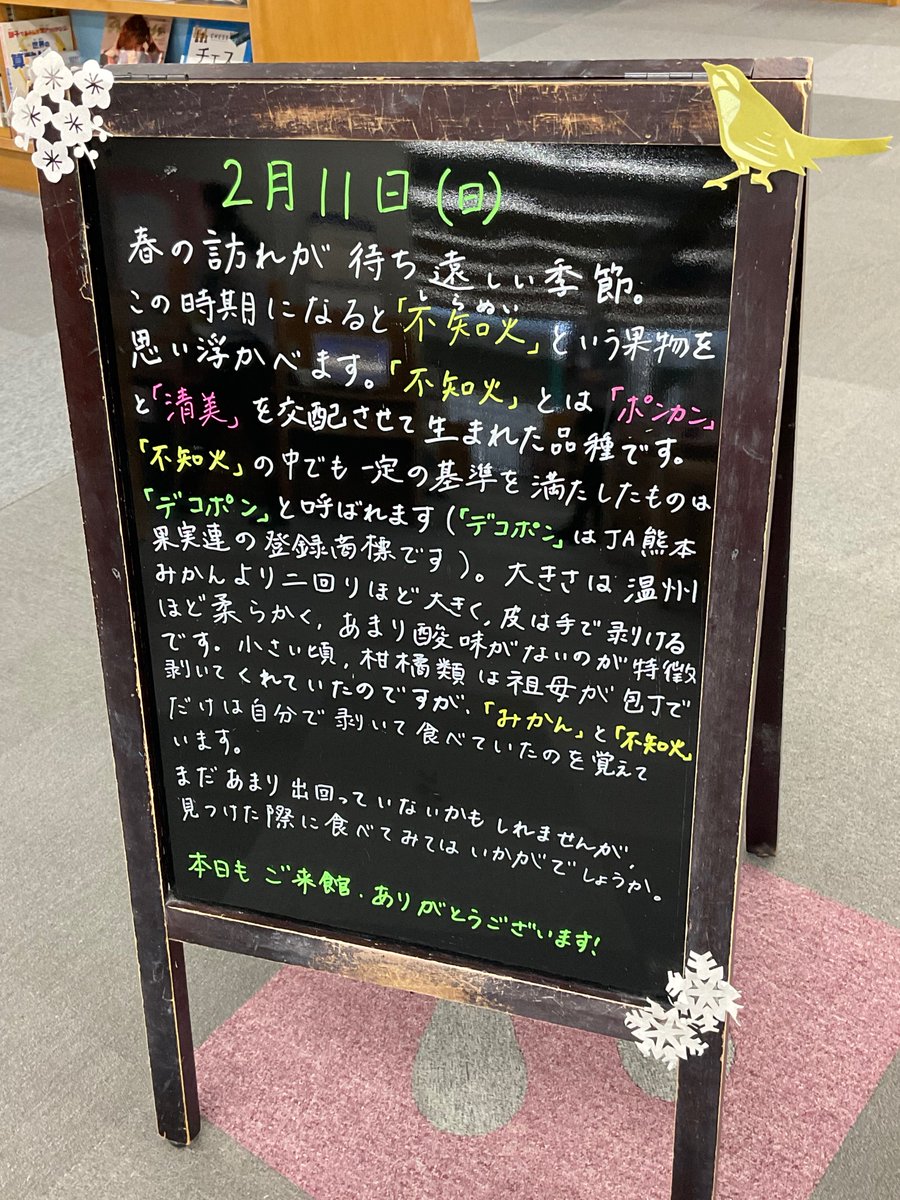 チェス
2月11日(日)
春の訪れが待ち遠しい季節。
しらぬい
この時期になると「不知火」という果物を
思い浮かべます。「不知火」とは「ポンカン」
と「清美」を交配させて生まれた品種です。
「不知火」の中でも一定の基準を満たしたものは
「デコポン」と呼ばれます(「デコポン」はJA熊本
果実連の登録商標です)。大きさは温州
みかんより二回りほど大きく,皮は手で剥ける
ほど柔らかく,あまり酸味がないのが特徴
です。小さい頃,柑橘類は祖母が包丁で
剥いてくれていたのですが、「みかん」と「不知火」
だけは自分で剥いて食べていたのを覚えて
います。
まだあまり出回っていないかもしれませんが,
見つけた際に食べてみてはいかがでしょうか。
本日もご来館、ありがとうございます!